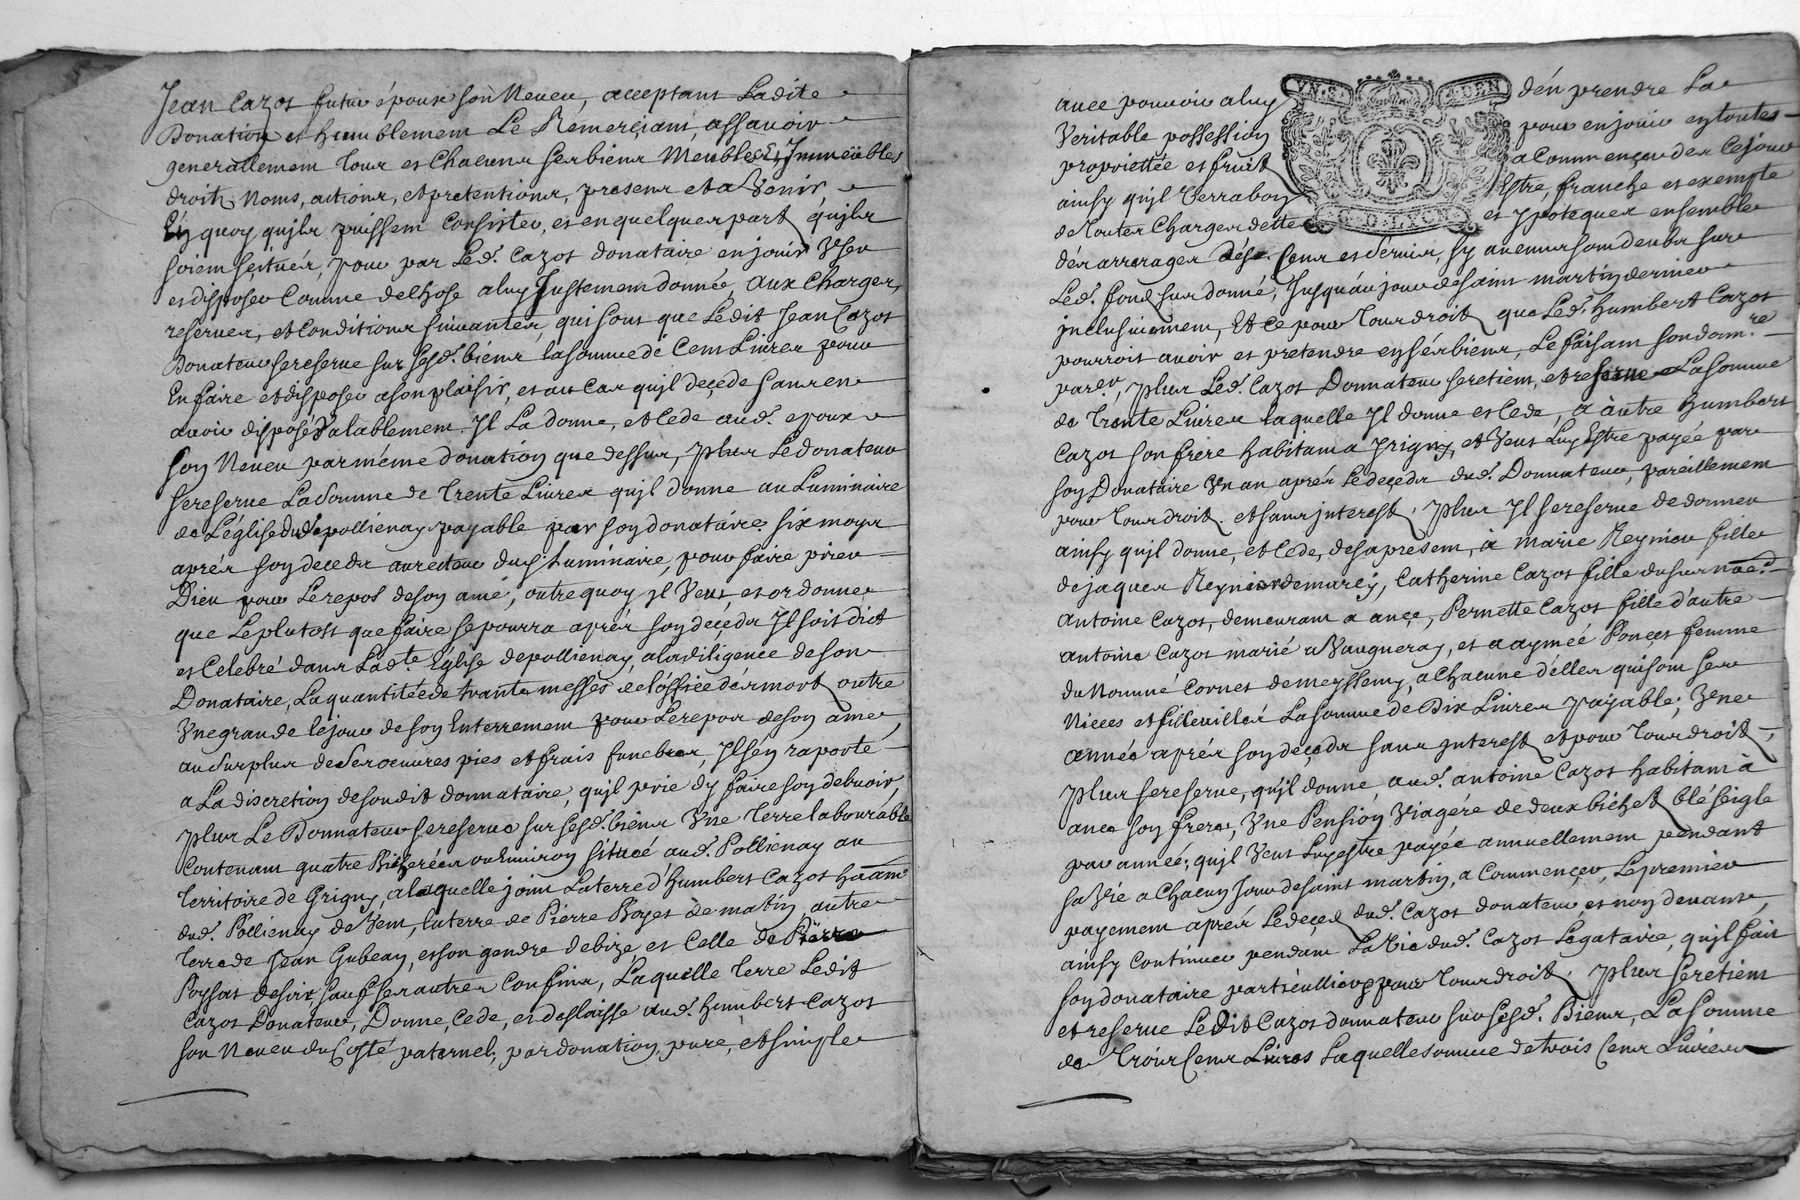 Jean Cazot futur époux son Neveu, acceptant Ladite
Donation et humblement Le Remerciant, assavoir
generallement tous et Chacuns ses biens Meubles Et Immeubles
droits, Noms, actions, et pretentions, presens et a Venir
En quoy qu'jls puissent Consister, et en quelques part qu'jls
soient scitués, pour par Led. Cazot donataire en jouir User
et disposer Comme de Chose a luy Justement donnée, aux Charges,
reserves, et Conditions suivantes, qui sont que Ledit Jean Cazot
Donateur se reserve sur sesd. biens la somme de Cent Livres pour
En faire et disposer a son plaisir, et au Cas qu'jl deçede sans en
avoir disposé Valablement. Jl La donne, et Cede aud. epoux
son Neveu par même donation que dessus, plus Le donateur
se reserve La Somme de trente Livres qu'jl donne au Luminaire
de L'église dud. pollienay payable par son donataire six moys
aprés son deceds au recteur dud. Luminaire, pour faire prier
Dieu pour Le repos de son ame, outre quoy jl Veut, et ordonne
que Le plutost que faire se pourra aprés son deçeds Jl soit dict
et Celebré dans Lad.te Église de pollienay, a la diligence de son
Donataire, La quantitée de trante messes de l'office des mort, outre
Vne grande le jour de son Enterrement pour Le repos de son ame,
au Surplus de Ses oeuvres pies et frais funebres, Jl s'en raporte
a La discretion de sondit donnataire, qu'jl prie d'y faire son debvoir,
plus Le Donnateur se reserve sur sesd. biens Vne terre labourable
Contenant quatre Bicherées ou Environ située aud. Pollienay au
territoire de Grigny, a laquelle joint La terre d'humbert Cazot ha.ant
dud. Pollienay de Vent, la terre de Pierre Boyet de matin, autre
terre de Jean Gubean, et son gendre de bize, et Celle de Pierre
Poysat de soir, sauf ses autres Confins, Laquelle terre Ledit
Cazot Donateur, Donne, Cede, et deslaisse aud. humbert Cazot
son Neveu du Costé paternel, par donation, pure, et simple
avec pouvoir a luy d'en prendre La
Veritable possession pour en jouir en toutes
proprietée et fruit a Commençer des Ce jour
ainsy qu'jl Verra bon Estre, franche et exempte
de toutes Charges dettes et ypoteques ensemble
des arrerages des Cens et servis, sy aucuns sont deubs sur
Led. fond sus donné, Jusqu'au jour de saint martin dernier
jnclusivement, Et Ce pour tout droit que Led. humbert Cazot
pourroit avoir et pretendre en ses biens, Le faisant son donn.re
par.er, plus Led. Cazot Donnateur se retient, et reserve La somme
de trente Livres laquelle Jl donne et Cede, a autre humbert
Cazot son frere habitant a Jrigny, et Veut Luy Estre payée par
son Donataire Vn an aprés Le deçeds dud. Donnateur, pareillement
pour tout droit. et sans jnterest, plus Jl se reserve de donner
ainsy qu'jl donne, et Cede, des a present, a marie Reynier fille
de jaques Reynier de mercy, Catherine Cazot fille du surnoe.
Antoine Cazot, demeurant a ance, Pernette Cazot fille d'autre
Antoine Cazot marié a Vaugneray, et a aymeé Poncet femme
du Nommé Cornet de meyssemy, a Chacune d'elles qui sont ses
Nieces et filleulles La somme de Dix Livres payable, Vne
année aprés son deçeds sans jnterest et pour tout droit,
plus se reserve, qu'jl donne, aud. antoine Cazot habitant a
ance son frere, Vne Pension Viagére de deux bichet blé seigle
par année, qu'jl Veut Luy estre payée annuellement pendant
sa Vie a Chacun Jour de saint martin, a Commençer, Le premier
payement aprés Le deçed dud. Cazot donateur, et non devant,
ainsy Continuer pendant La Vie dud. Cazot Legataire, qu'jl fait
son donataire particullier pour tout droit, plus se retient
et reserve Le Dit Cazot donnateur sur sesd. Biens, La somme
de trois Cens Livres Laquelle somme de trois Cens Livres